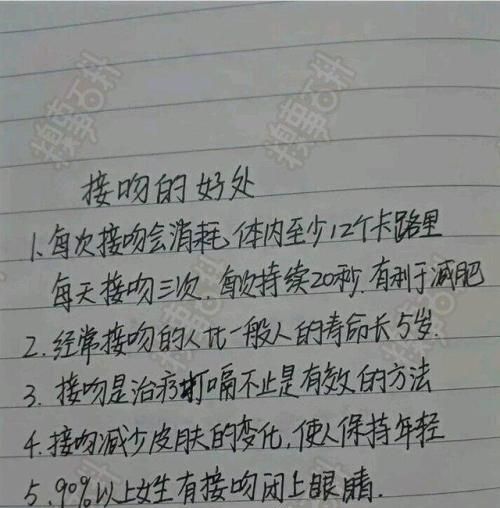 接吻的好处
1.每次接吻会消耗体内至少12个卡路里
每天接吻三次,每次持续20秒,有利于减肥
2.经常接吻的人比一般人的寿命长5岁.
3.接吻是治疗打嗝不止是有效的方法
4.接吻减少皮肤的变化,使人保持年轻
5.90%以上女生有接吻闭上眼睛.
糗事百科
糗事百科
糗事百科
糗事百科
糗事百科